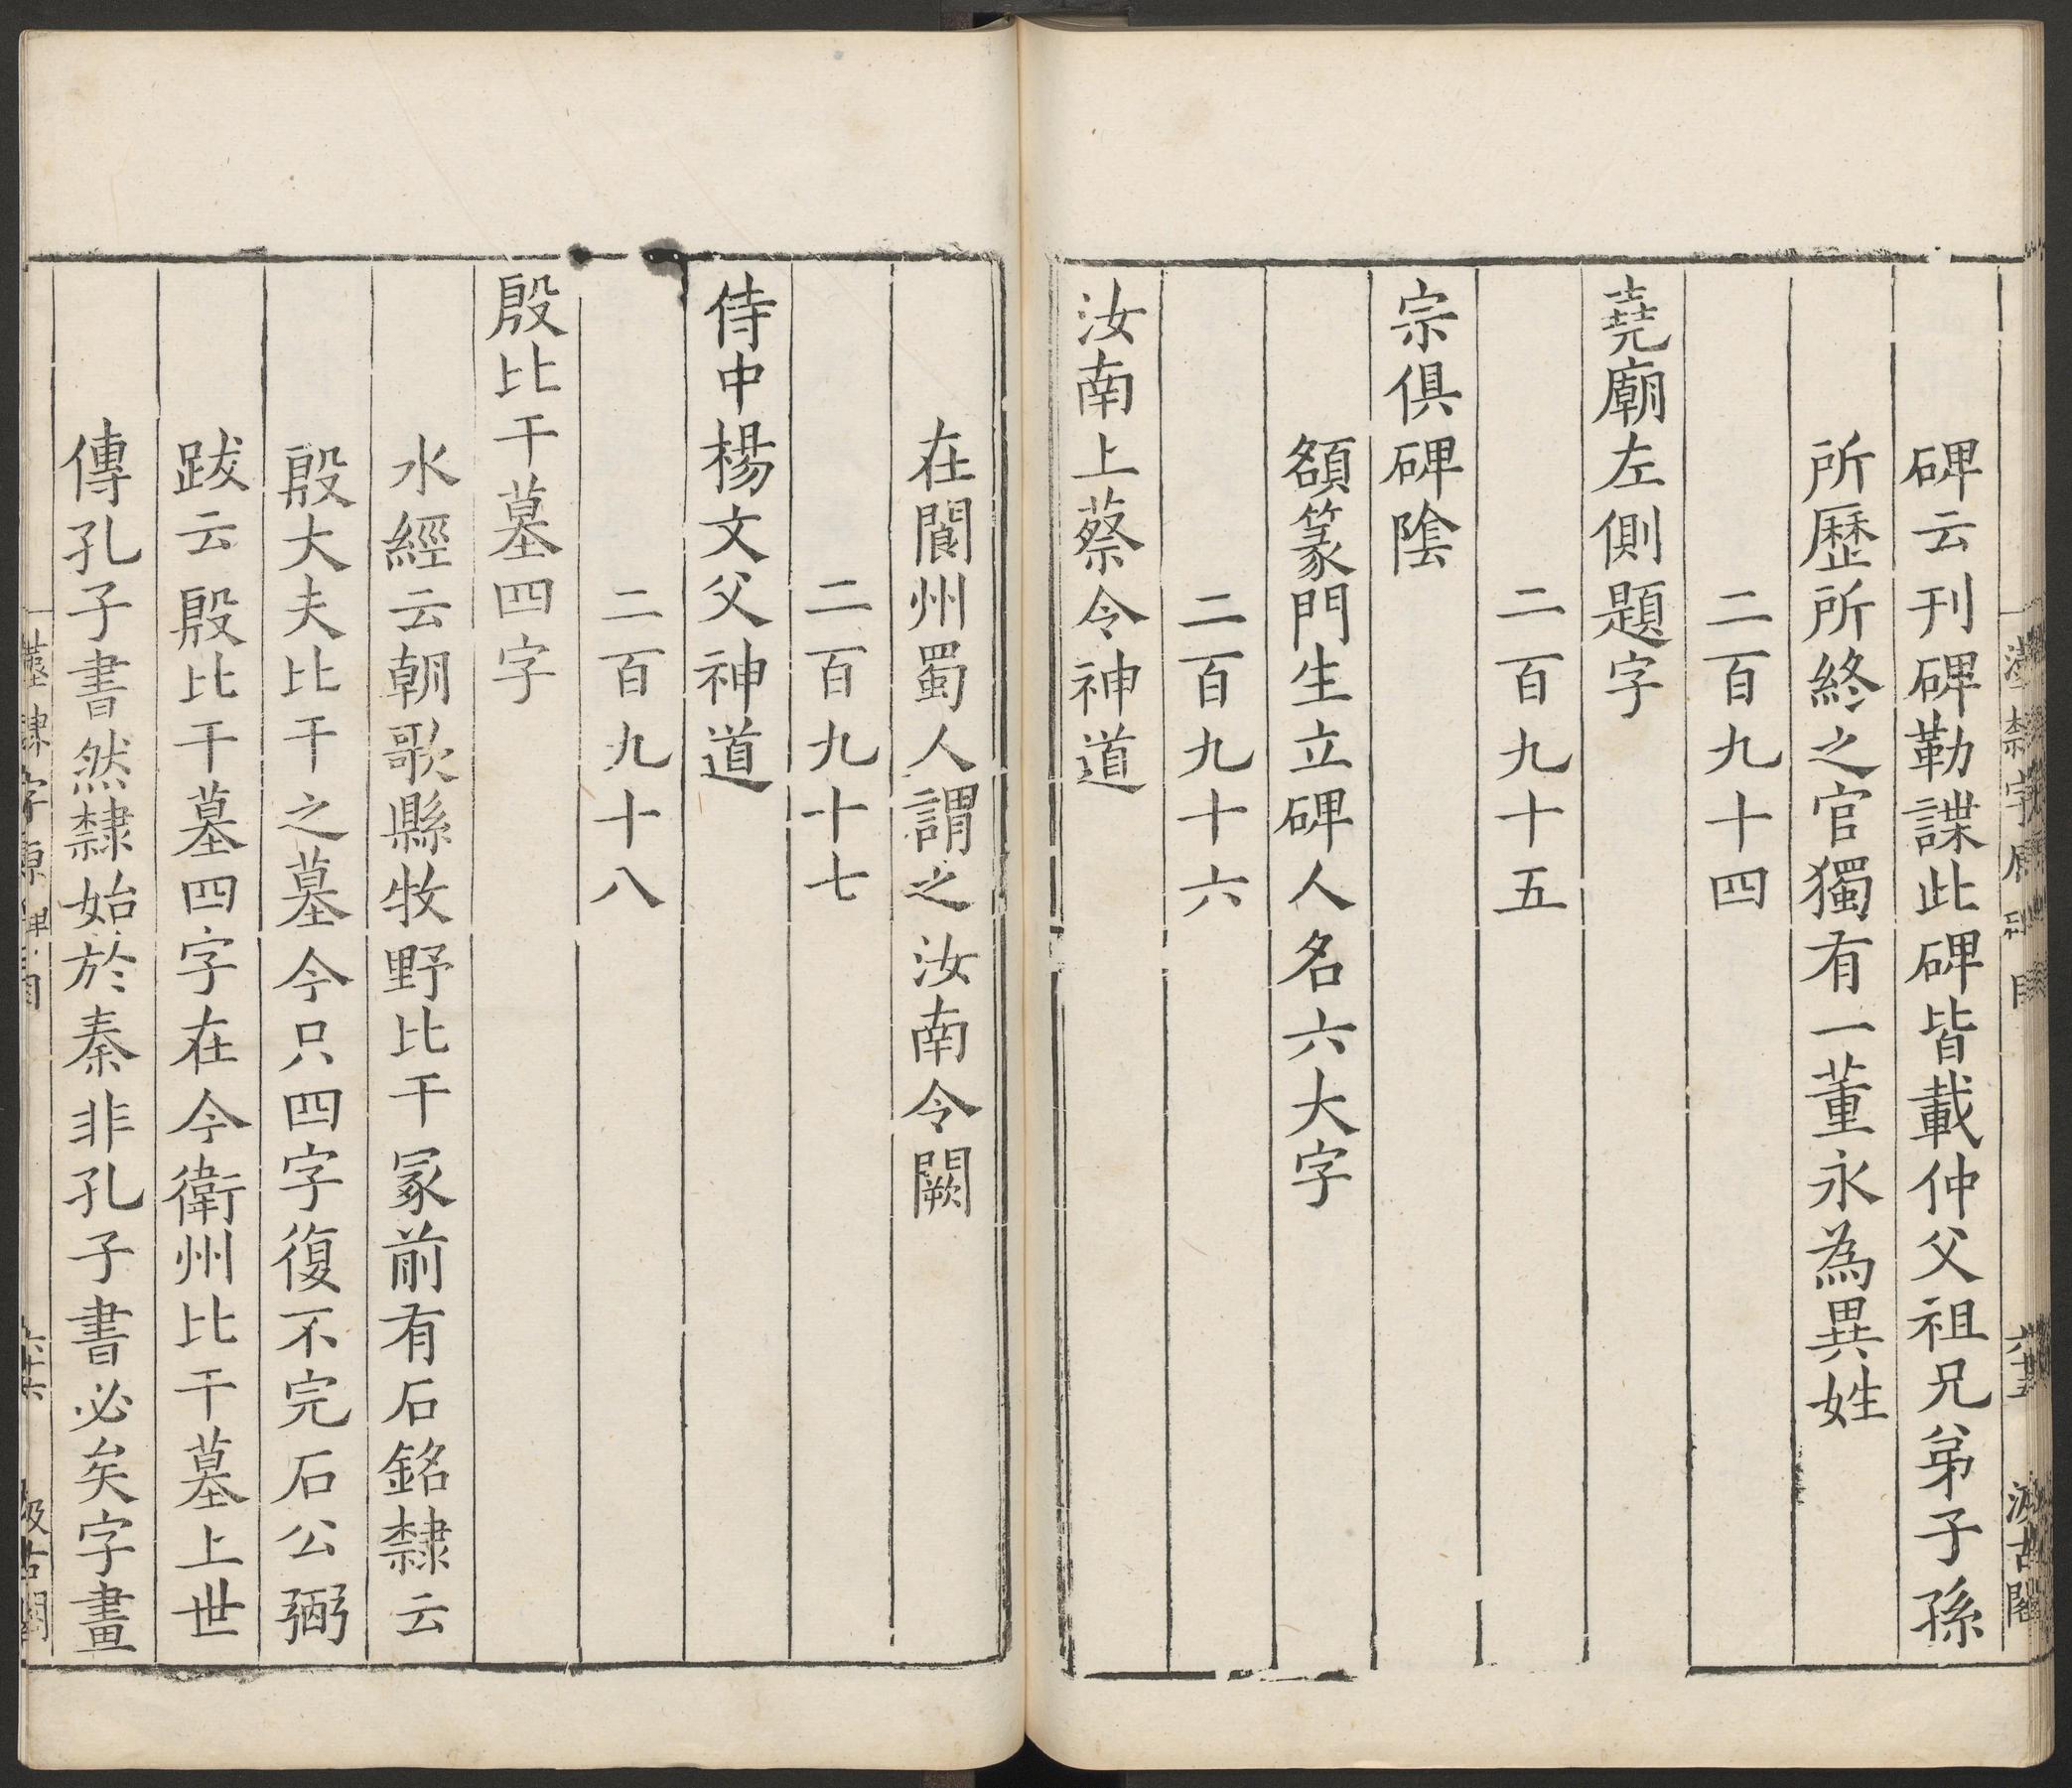 碑云刊碑勒諜此碑皆載仲父祖兄弟子孫
所歷所終之官獨有一董永為異姓
二百九十四
堯廟左側題字
二百九十五
宗俱碑陰
額篆門生立碑人名六大字
二百九十六
汝南上蔡令神道
在閬州蜀人謂之汝南令闕
二百九十七
侍中楊文父神道
二百九十八
殷比干墓四字
水經云朝歌縣牧野比干冡前有石銘隸云
殷大夫比干之墓今只四字復不完石公弼
跋云殷比干墓四字在今衛州比干墓上世
傳孔子書然隸始於秦非孔子書必矣字畫